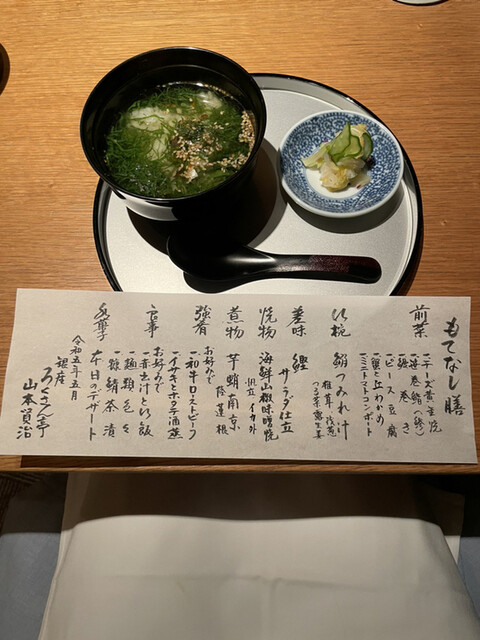 もてなし膳
前菜
一チーズ黄金焼
一笹巻鮨（鯵）
一鰻巻き
一ピース豆腐
一蟹と立わかめ
一ミニトマトコンポート
椀
つみれ汁
椎茸 浅葱
差味
鰹 サラダ仕立
焼物
海鮮山椒味噌焼
帆立 イカ 外
煮物
芋蛸南京
蓮根
強肴
お好みで
一和牛ローストビーフ
一イサキとホタテ酒蒸
食事
お好みで
一赤出汁と御飯
一麺類色々
一鯖茶漬
水菓子
本日のデザート
令和五年五月
銀座
ろくさん亭
山本賢治